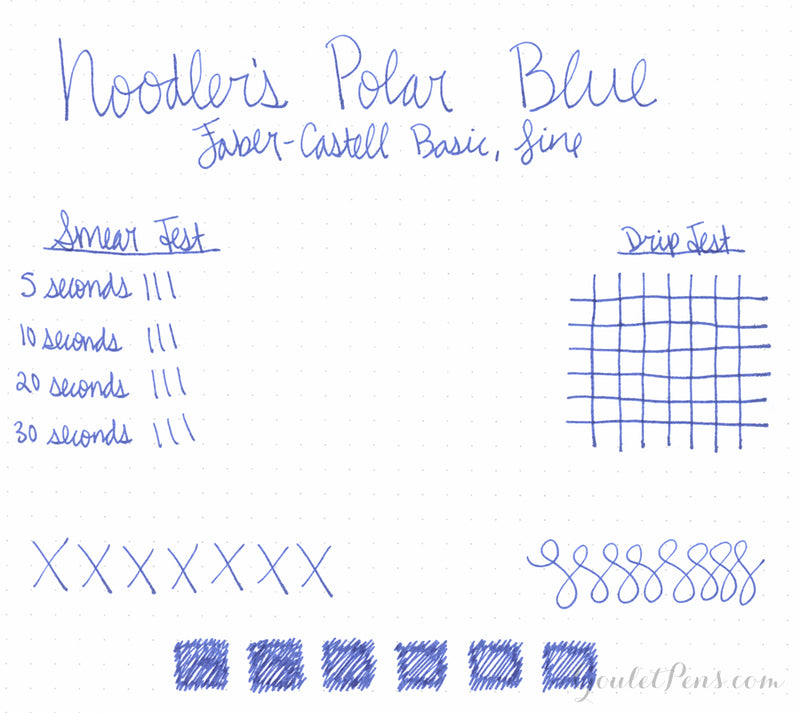 Noodler's Polar Blue
Faber-Castell Basic, fine
Smear Test
Drip Test
5 seconds
10 seconds
20 seconds
30 seconds
X X X X X X X
GouletPens.com